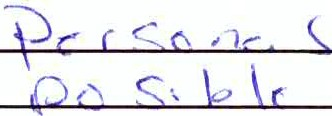 Personal
posible